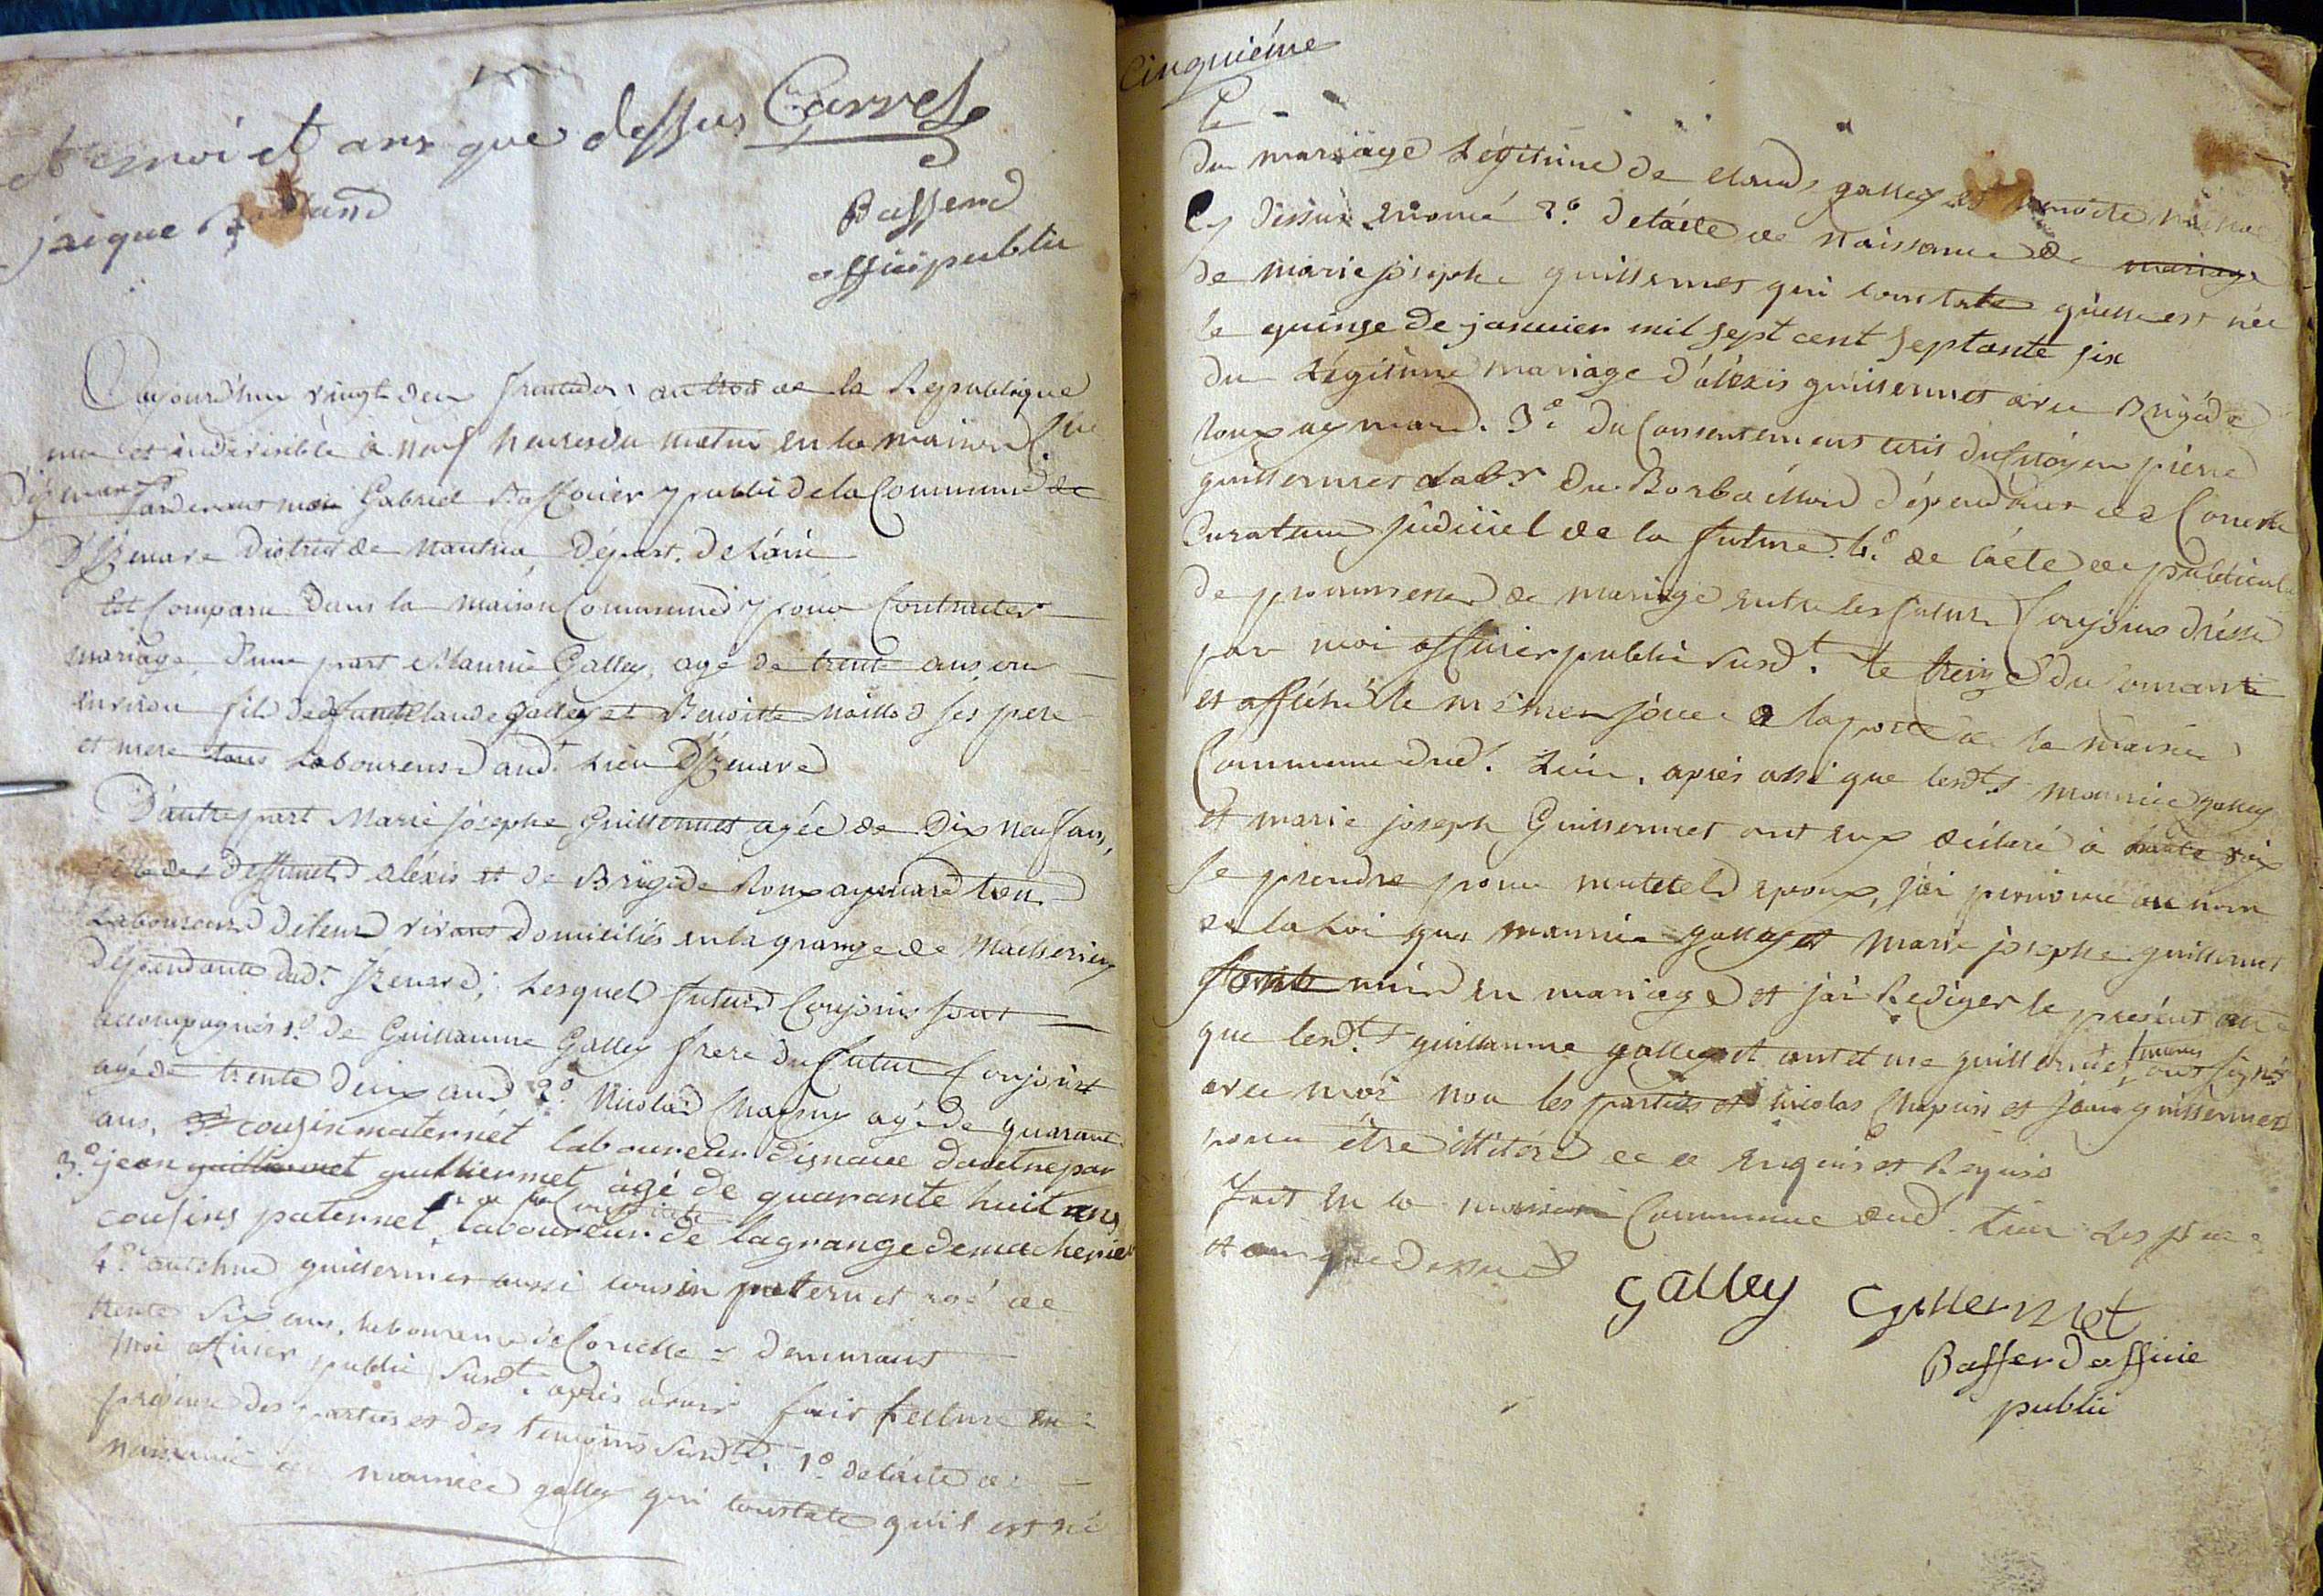 et moi et ans que dessus Carrel
jacque
Bassend
officié public
Aujourdhui vingt deux fructidor an trois de la Republique
une et indivisible à neuf heures du matin en la maison C.ne
D'izenave
Pardevant moi Gabriel officier public de la Commune de
D'Izenave District de Nantua, Départ. de l'ain
Est Comparu Dans la maison Commune pour Contracter
mariage, d'une part Maurice Galley, agé de trente ans, ou
environ fils de defunt Claude Galley et Benoitte ses pere
et mere tous laboureurs aud.t lieu D'Izenave
D'autre part Marie Josephe Guillermet agée de Dix neuf ans,
fille des deffunts aléxis et de Brigide Roux aymard tous
Laboureurs de leurs vivant Domiciliés en la grange de
dépendante dud.t Izenave; Lesquels futurs Conjoins sont
accompagnés 1.º de Guillaume Galley frere du futur Conjoint
agé de trente deux ans 2.º Nicolas Chapuis agé de quarante
ans, cousin maternét laboureur d'isnave d'autre par
3.º jean guilliermet guilliermet àgé de quarante huit ans
cousins paternel, laboureur de lagrange de macherie
4.º guillermet aussi cousin paternel agé de
trente six ans, laboureur de Corcelle demeurant
Moi officier public susd.t après avoir fait lecture en
présence des parties et des temoins susd.ts 1.º de l'acte de
naissance de maurice galley qui constate qu'il est né
Cinquiéme
le
du mariage Légitime de claude galley et benoite
Cy dessus 2.º de l'acte de Naissance de mariage
de marie josephe guillermet qui constate qu'elle est née
le quinze de janvier mil sept cent septante six
du Légitime mariage d'aléxis guillermet avec Brigide
roux aymard. 3.º du Consentement écrit du Citoyen pierre
guillermet lab.r du dépendant de Corcelle
Curateur judiciel de la future. 4.º de l'acte de publication
de promesse de mariage entre les futurs Conjoins dréssé
par moi officier public susd.t le treize du Courant
et affiché le même jour a la porte de la maison
Commune dud.t Lieu. aprés aussi que lesd.ts maurice galley
et marie joseph Guillermet ont eux déclaré à haute voix
se prendre pour mutuels epoux, j'ai prononcé au nom
de la Loi que maurice galley et marie josephe guillermet
sont unis en mariage et j'ai Rediger le présent acte
que lesd.ts guillaume galley et guillermet temoins ont signé
avec moi non les parties et nicolas Chapuis et jean guillermet
pour être illitéré de ce enquis et Requis
fait en la maison Commune dud.t lieu Les jour
et an que dessus
galley Gillermet
Bassend officié
public